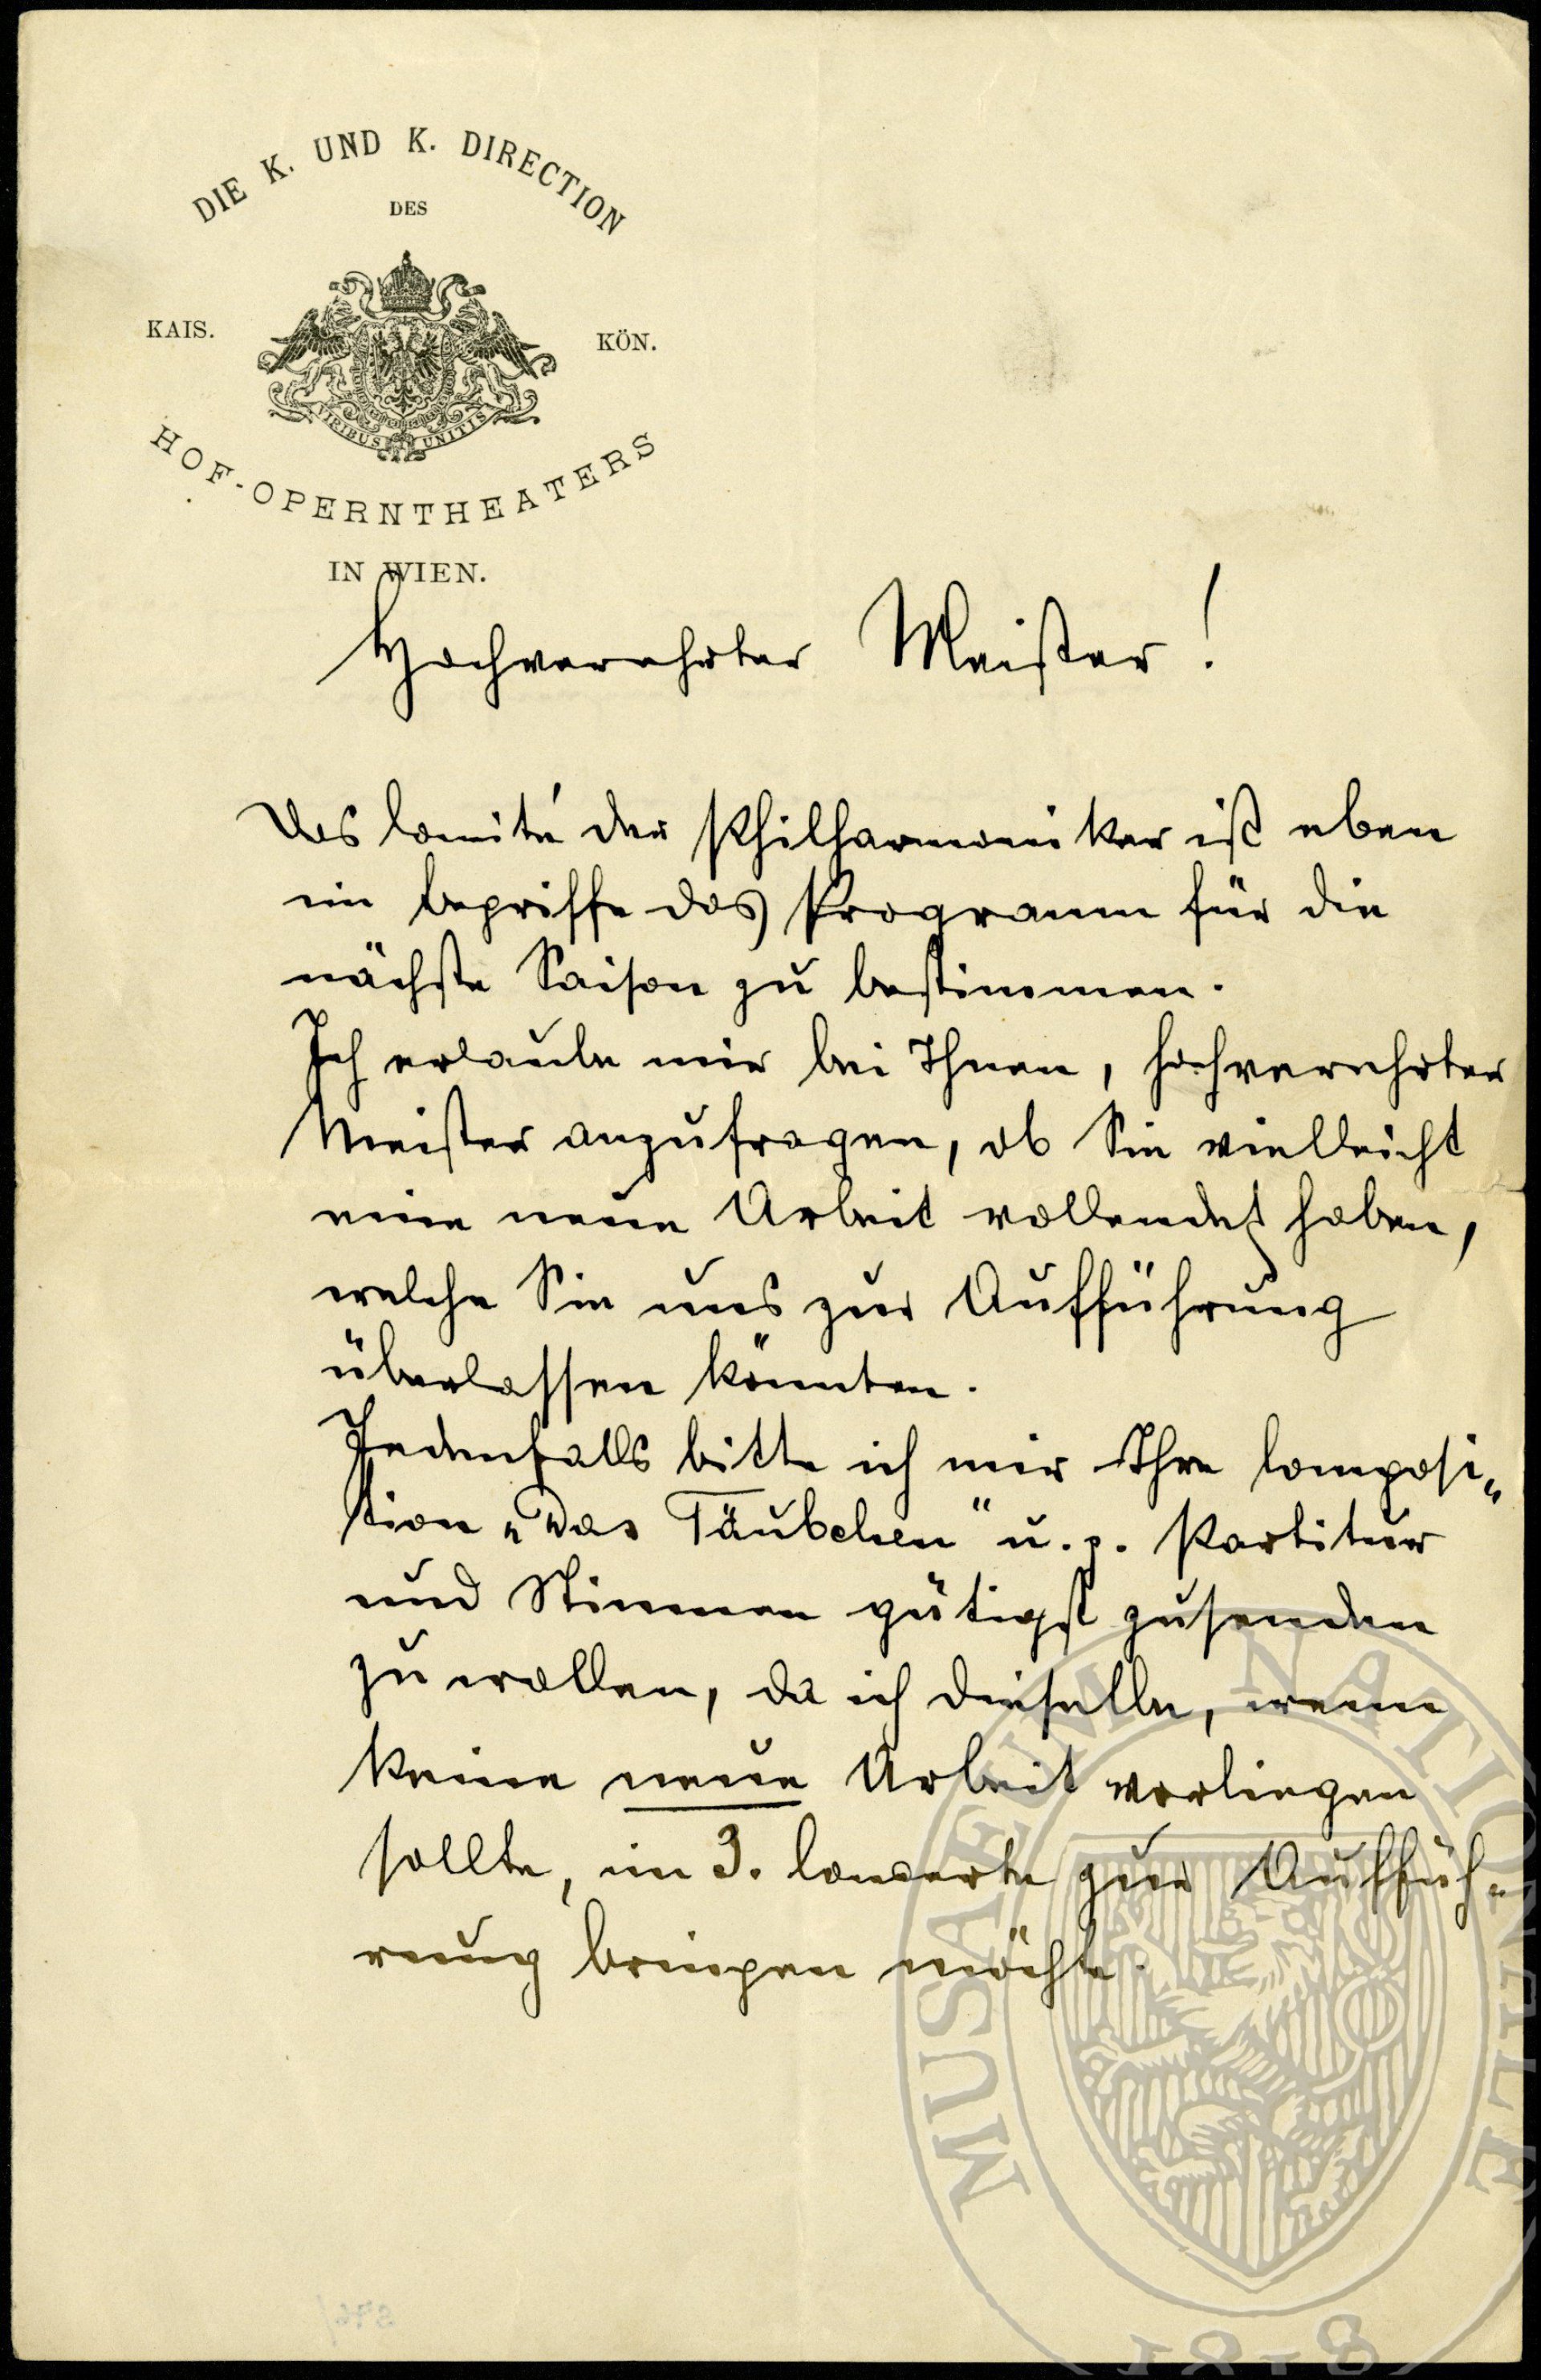 DIE K. UND K. DIRECTION
DES
KAIS. KÖN.
VIRIBUS UNITIS
HOF-OPERNTHEATERS
IN WIEN.
Hochverehrter Meister!
Das Comité der Philharmoniker ist eben
im Begriffe das Programm für die
nächste Saison zu bestimmen.
Ich erlaube mir bei Ihnen, hochverehrter
Meister anzufragen, ob Sie vielleicht
eine neue Arbeit vollendet haben,
welche Sie uns zur Aufführung
überlassen könnten.
Jedenfalls bitte ich mir Ihre Composi„
tion „Das Täubchen“ u. z. Partitur
und Stimmen gütigst zusenden
zu wollen, da ich dieselbe, wenn
keine neue Arbeit vorliegen
sollte, im 3. Concerte zur Auffüh„
rung bringen möchte.
MUSAEUM NATIONALE
1818